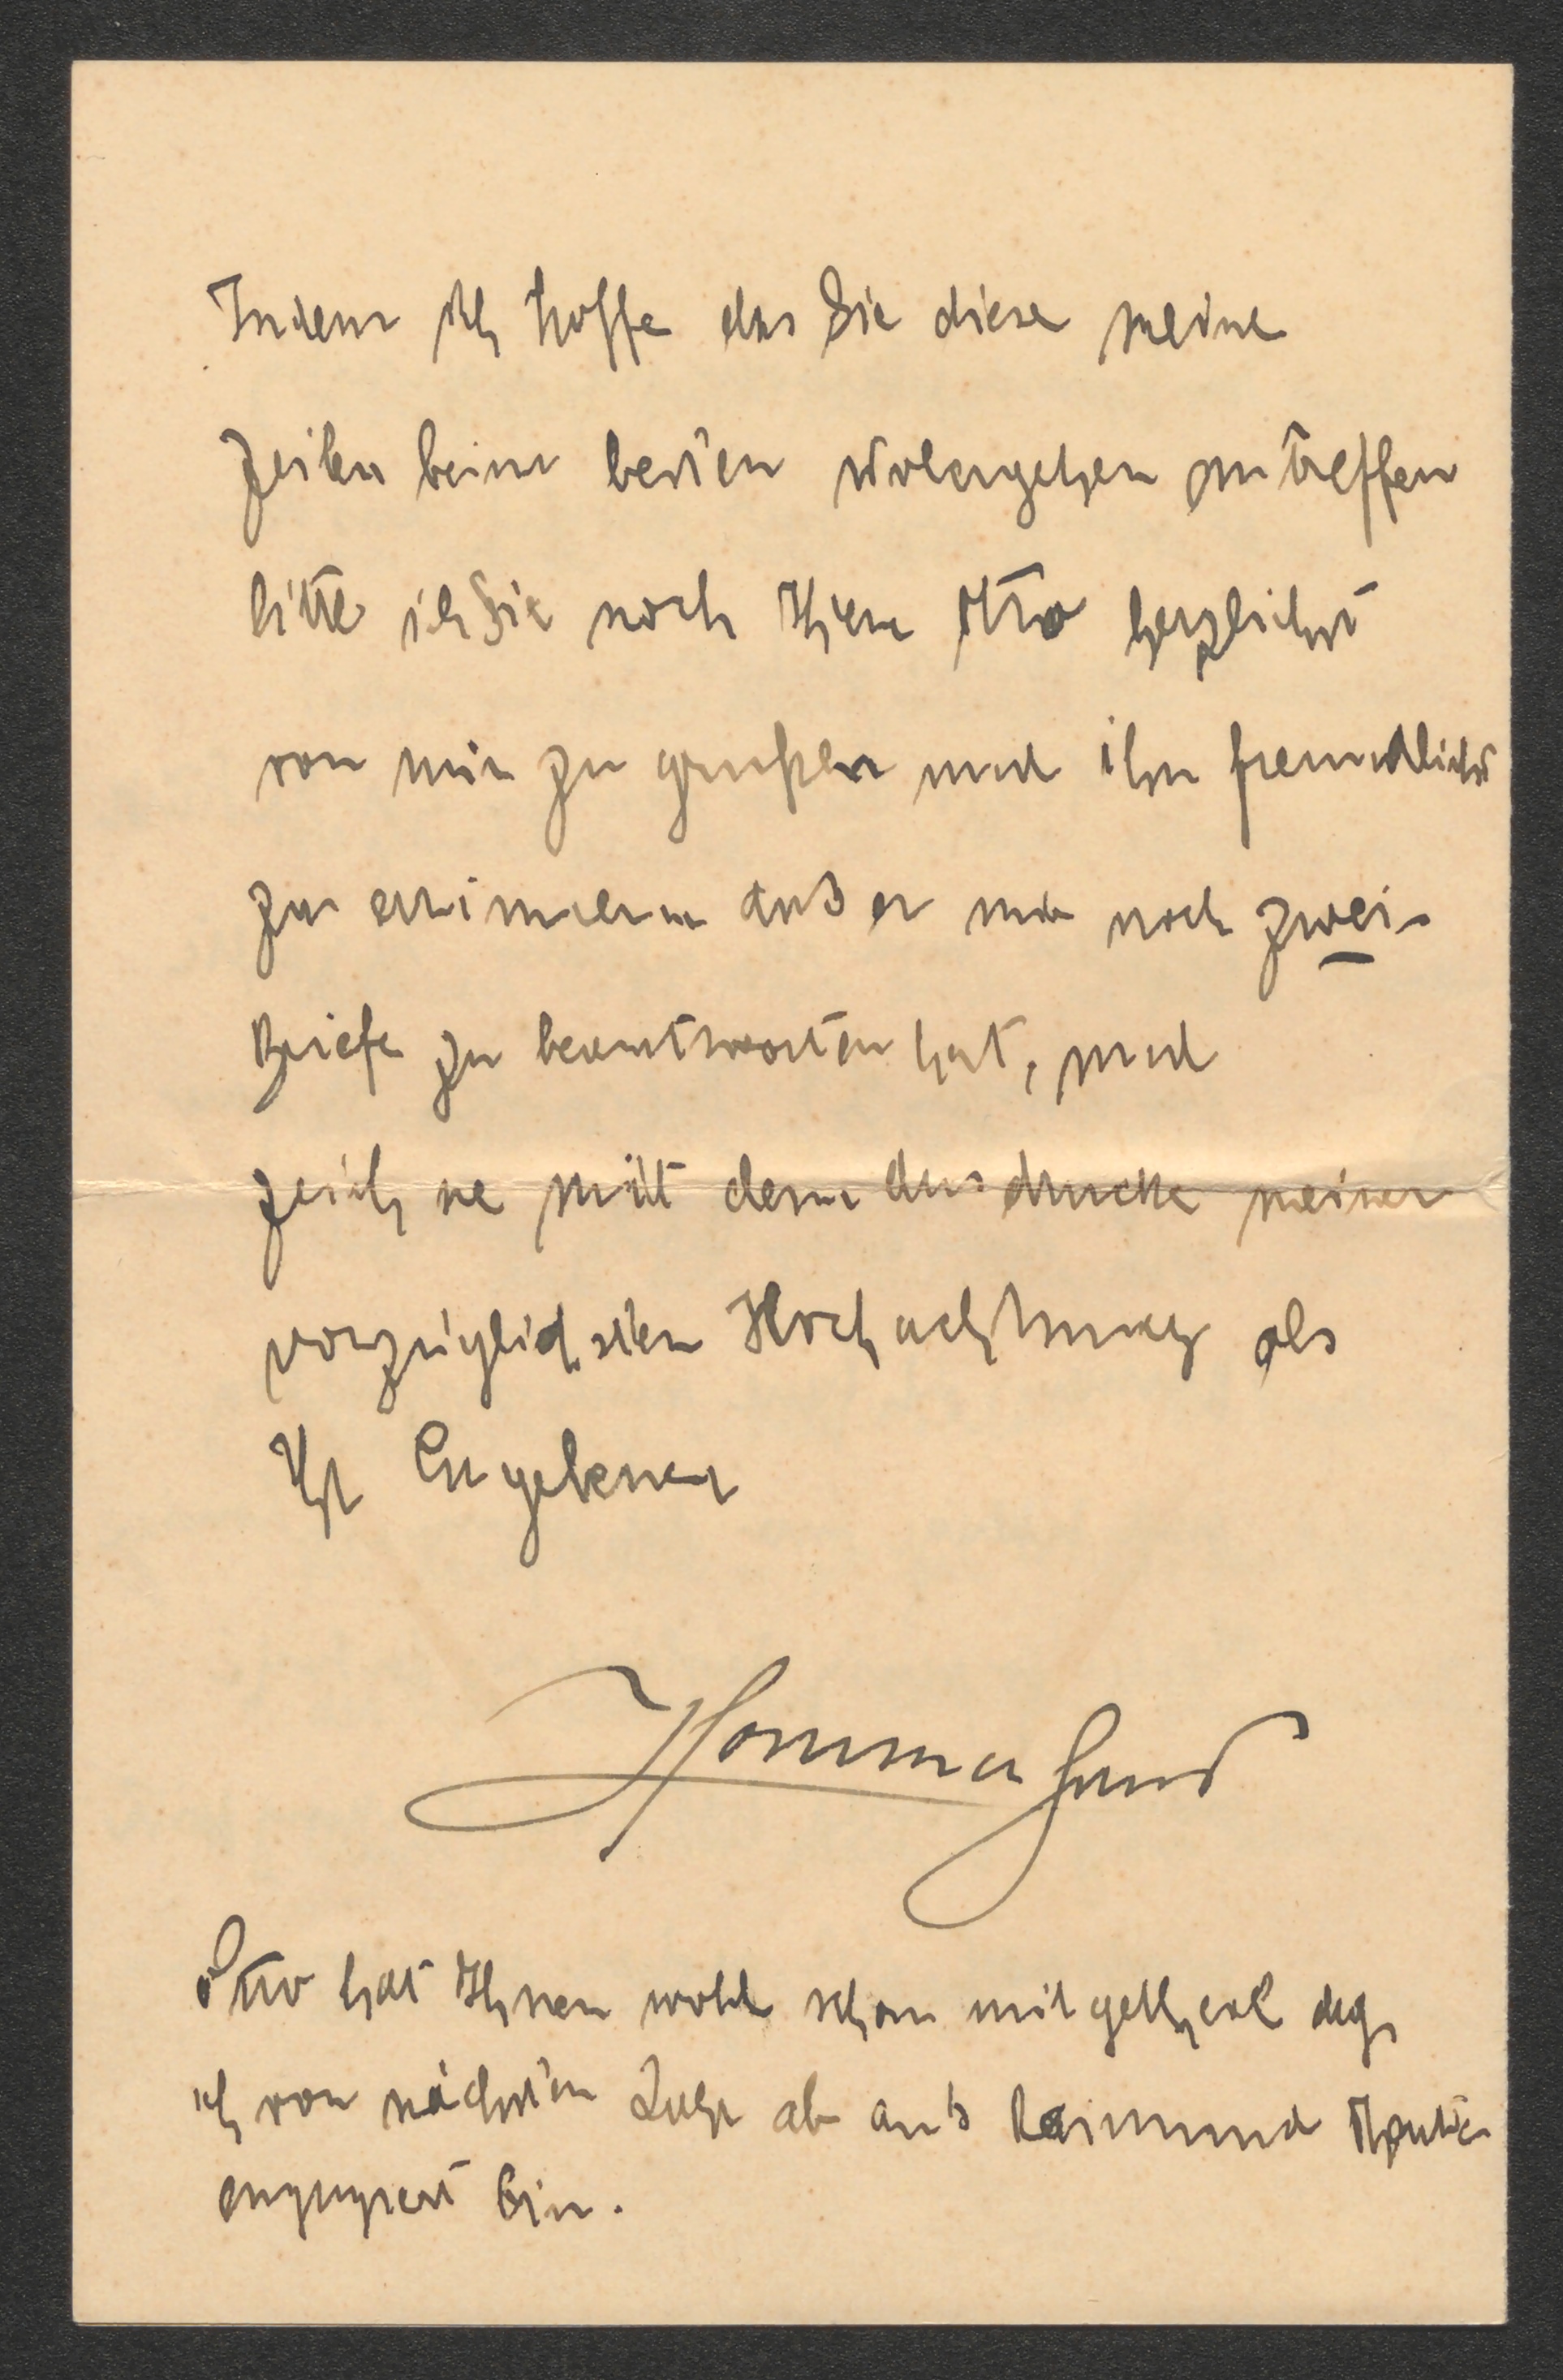 Indem ich hoffe das Sie diese meine
Zeilen beim besten Wolergehen antreffen
bitte ich Sie noch Ihren Otto herzlichst
von mir zu grußen und ihn freundlichst
zu erinnern daß er mir noch zwei
Briefe zu beantworten hat, und
zeichne mitt dem Ausdrucke meiner
vorzüglichsten Hochachtung als
Ihr Ergebener
Otto hat Ihnen wohl schon mitgetheilt daß
ich von nächsten Jahr ab ans Raimund Theater
engagiert bin.